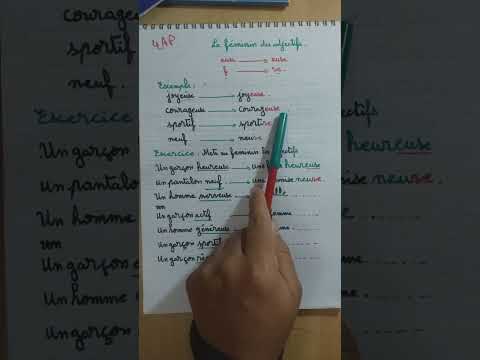 4AP
Le féminin des adjectifs.
eux → euse
f → ve
Exemple :
joyeux → joyeuse
courageux → courageuse
sportif → sportive
neuf → neuve
Exercice : Mets au féminin les adjectifs
Un garçon heureux → une heureuse
Un pantalon neuf → une chemise neuve
Un homme nerveux →
Un garçon actif
Un homme généreux
Un garçon sportif
Un garçon